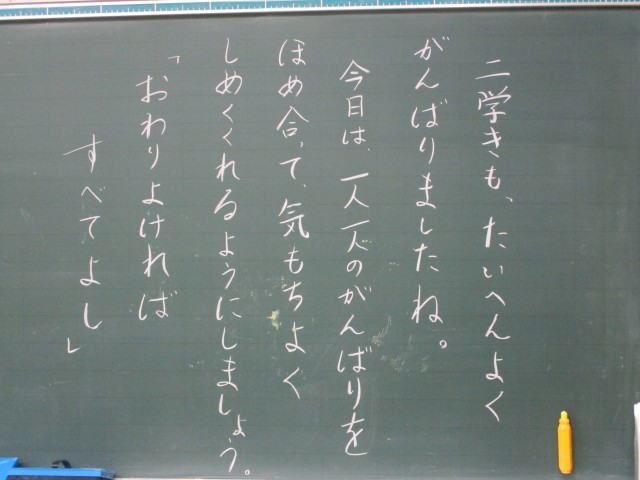 二学きも、たいへんよく
がんばりましたね。
今日は、一人一人のがんばりを
ほめ合って、気もちよく
しめくくれるようにしましょう。
「おわりよければ
すべてよし」